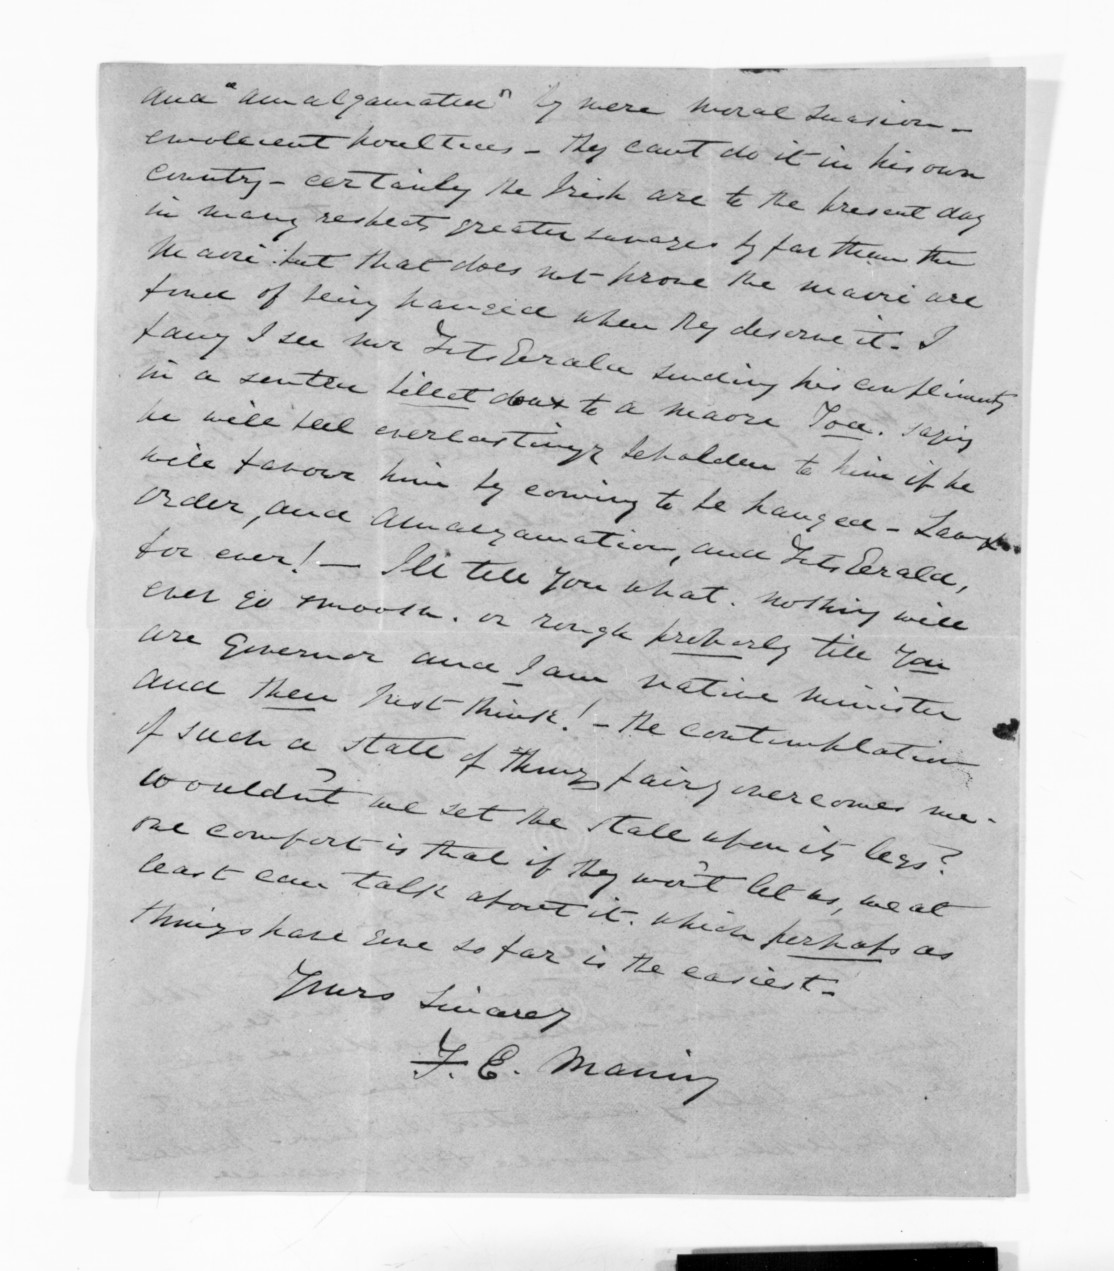 and "amalgamated" by mere moral suasion -
emolecent poultices - they cant do it in his own
country - certainly the Irish are to the present day
in many respects greater savages by far than the
Maori but that does not prove the maori are
fond of being hanged when they deserve it. I
fancy I see mr FitzGerald sending his compliments
in a scented billet doux to a maori Toa. saying
he will feel everlastingly beholden to him if he
will favour him by coming to be hanged - Law
order, and amalgamation, and FitzGerald,
for ever! - I'll tell you what. nothing will
ever go smooth. or rough properly till you
are Governor and I am native minister
and then just think! - the contemplation
of such a state of things fairly overcomes me -
wouldn't we set the state upon its legs?
one comfort is that if they won't let us, we at
least can talk about it. which perhaps as
things have gone so far is the easiest -
Yours Sincerely
F. E. Maning